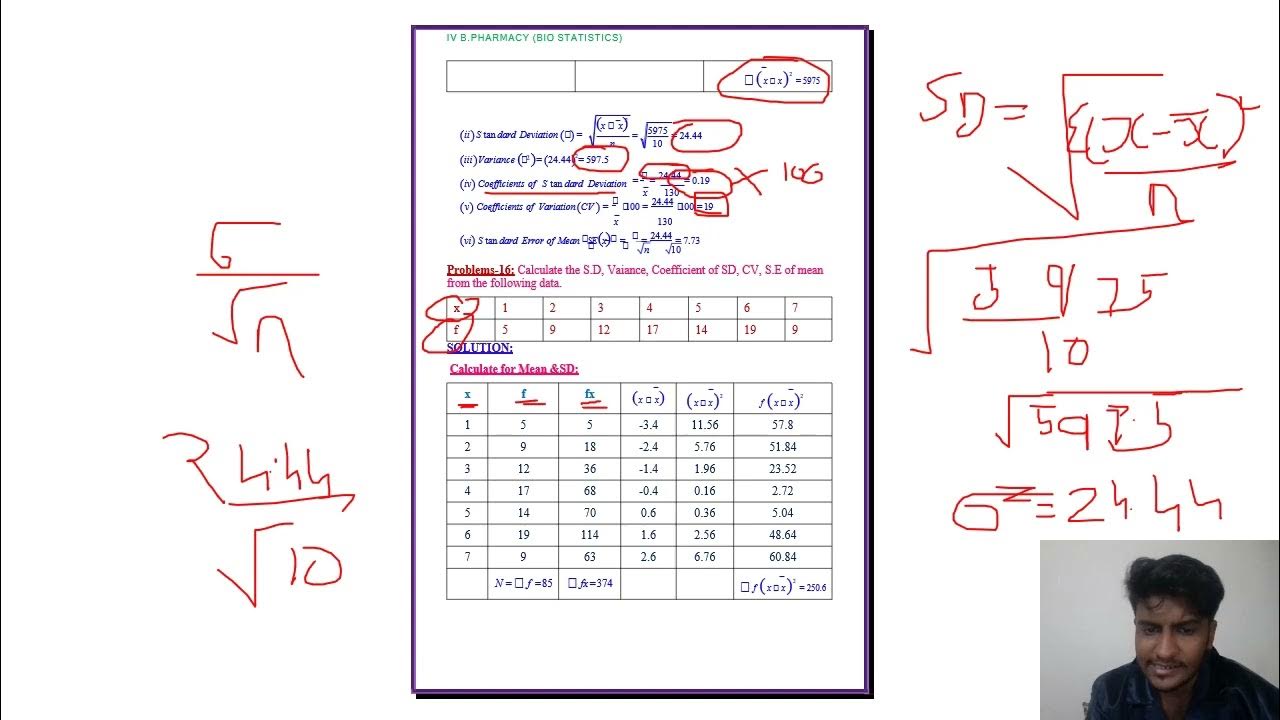 IV B.PHARMACY (BIO STATISTICS)
□ (x̄ □ x)² = 5975
(ii) S tan dard Deviation (□) = √((x □ x̄)/n) = √(5975/10) = 24.44
(iii) Variance (□²) = (24.44)² = 597.5
(iv) Coefficients of S tan dard Deviation = □/x̄ = 24.44/130 = 0.19
× 100
(v) Coefficients of Variation (CV) = □/x̄ □100 = 24.44/130 □100 = 19
(vi) S tan dard Error of Mean = □/√n = 24.44/√10 = 7.73
Problems-16: Calculate the S.D, Vaiance, Coefficient of SD, CV, S.E of mean
from the following data.
x 1 2 3 4 5 6 7
f 5 9 12 17 14 19 9
SOLUTION:
Calculate for Mean &SD:
x f fx (x □ x̄) (x □ x̄)² f (x □ x̄)²
1 5 5 -3.4 11.56 57.8
2 9 18 -2.4 5.76 51.84
3 12 36 -1.4 1.96 23.52
4 17 68 -0.4 0.16 2.72
5 14 70 0.6 0.36 5.04
6 19 114 1.6 2.56 48.64
7 9 63 2.6 6.76 60.84
N = □ f =85 □ fx =374 □ f (x □ x̄)² = 250.6
σ
√n
24.44
√10
SD = √(Σ(x - x̄)²
n
√5975
10
√597.5
σ = 24.44